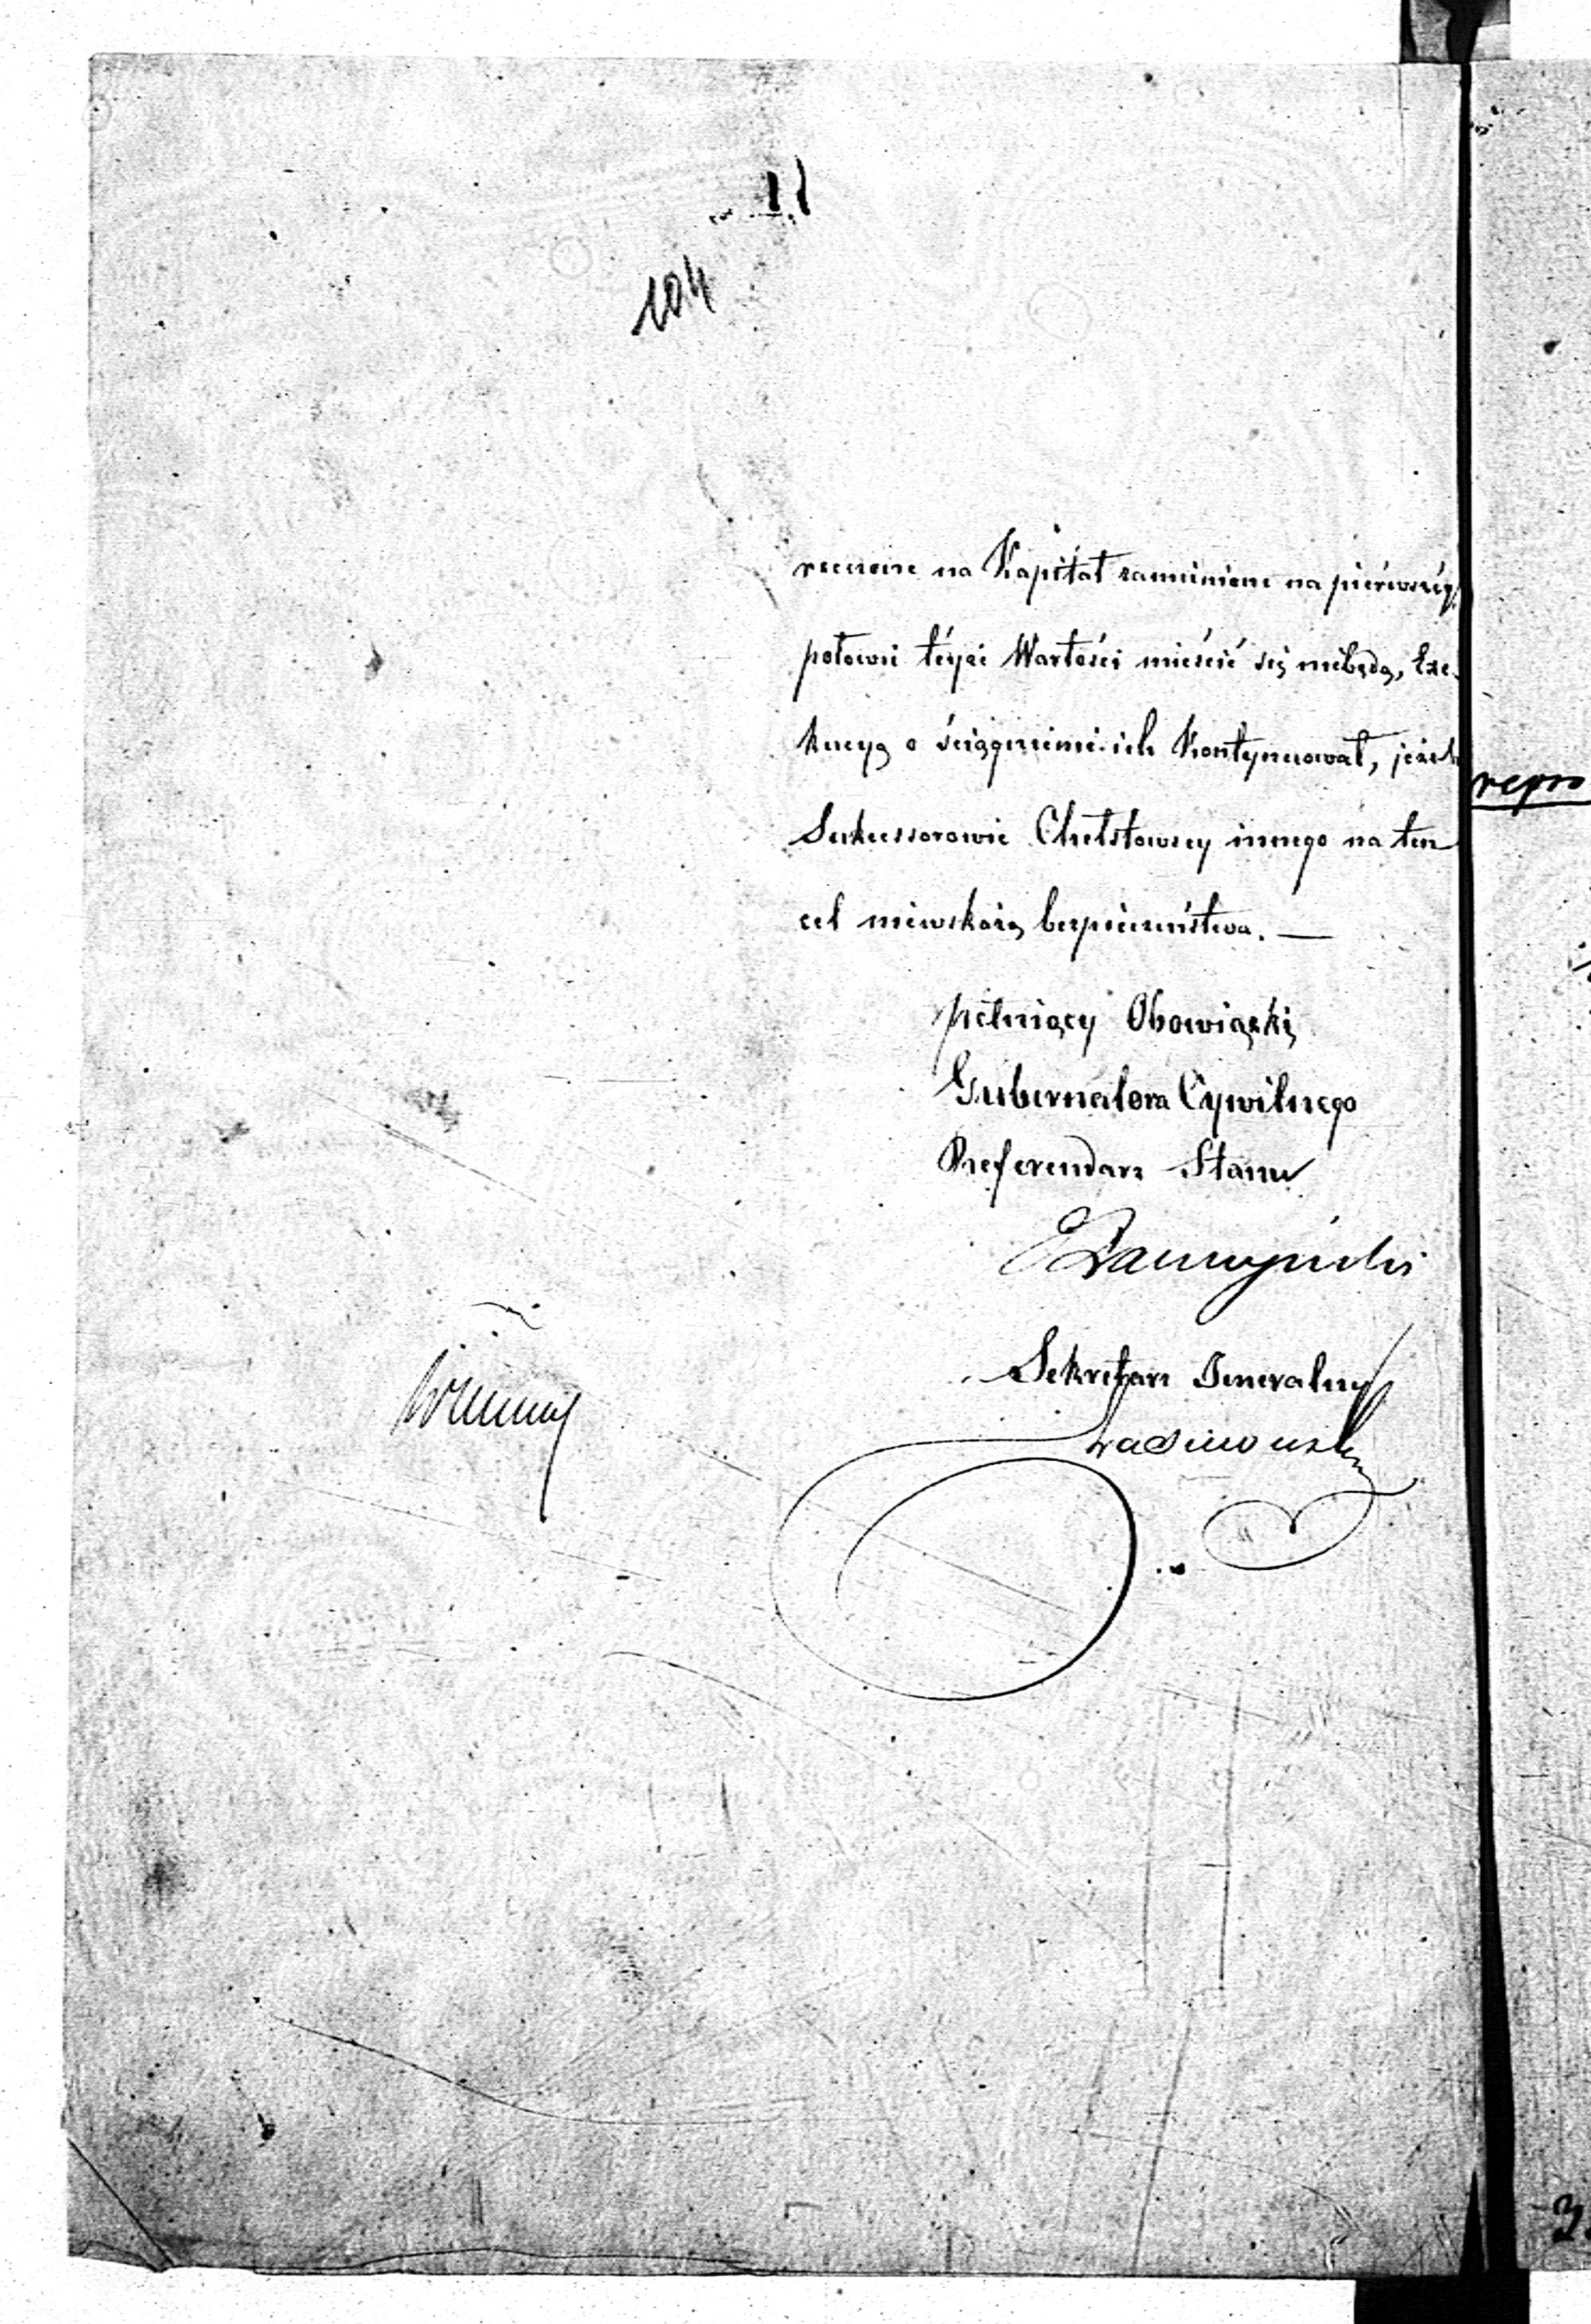 104
rzeczone na Kapitał zamienione na pierwszéy
połowie téyże Wartości mieścić się niebędą, Exe-
kucyą o ściągnienie ich kontynuował, jeżeli
Sukcessorowie Chełstowscy innego na ten
cel niewskażą bezpieczeństwa. —
pełniący Obowiązki
Gubernatora Cywilnego
Referendarz Stanu
Sekretarz Jeneralny
repro